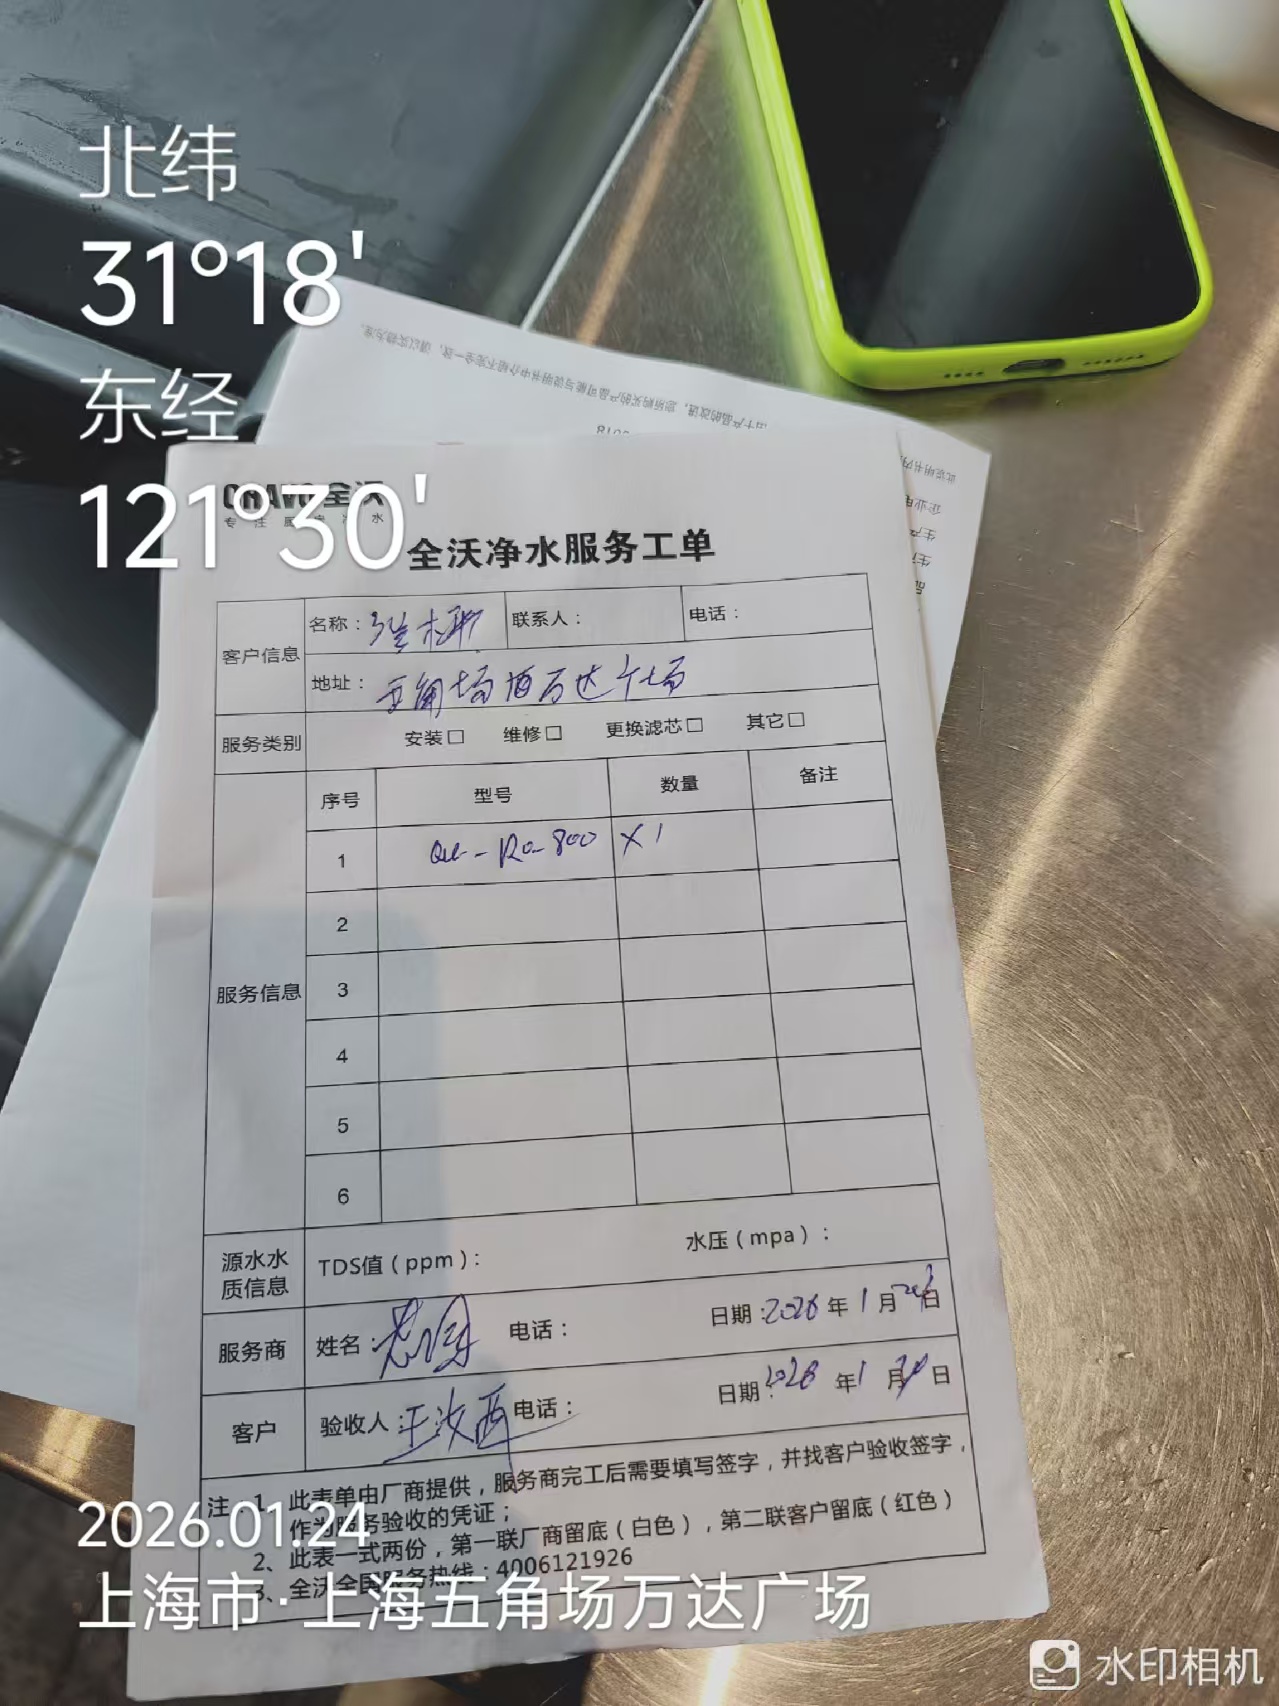 北纬
31°18'
东经
121°30'
由于产品的改进，您所购买的产品可能与说明书中介绍不完全一致，请以实物为准。
全沃
专注 净水
全沃净水服务工单
客户信息
名称：张木 联系人： 电话：
地址：五角场 万达广场
服务类别 安装□ 维修□ 更换滤芯□ 其它□
服务信息
序号 型号 数量 备注
1 QW-RO-800 X1
2
3
4
5
6
源水水质信息 TDS值（ppm）： 水压（mpa）：
服务商 姓名： 电话： 日期：2026年1月 日
客户 验收人：王汝西 电话： 日期：2026年1月 日
注：1、此表单由厂商提供，服务商完工后需要填写签字，并找客户验收签字，
作为服务验收的凭证；
2、此表一式两份，第一联厂商留底（白色），第二联客户留底（红色）
3、全沃全国服务热线：4006121926
2026.01.24
上海市·上海五角场万达广场
水印相机